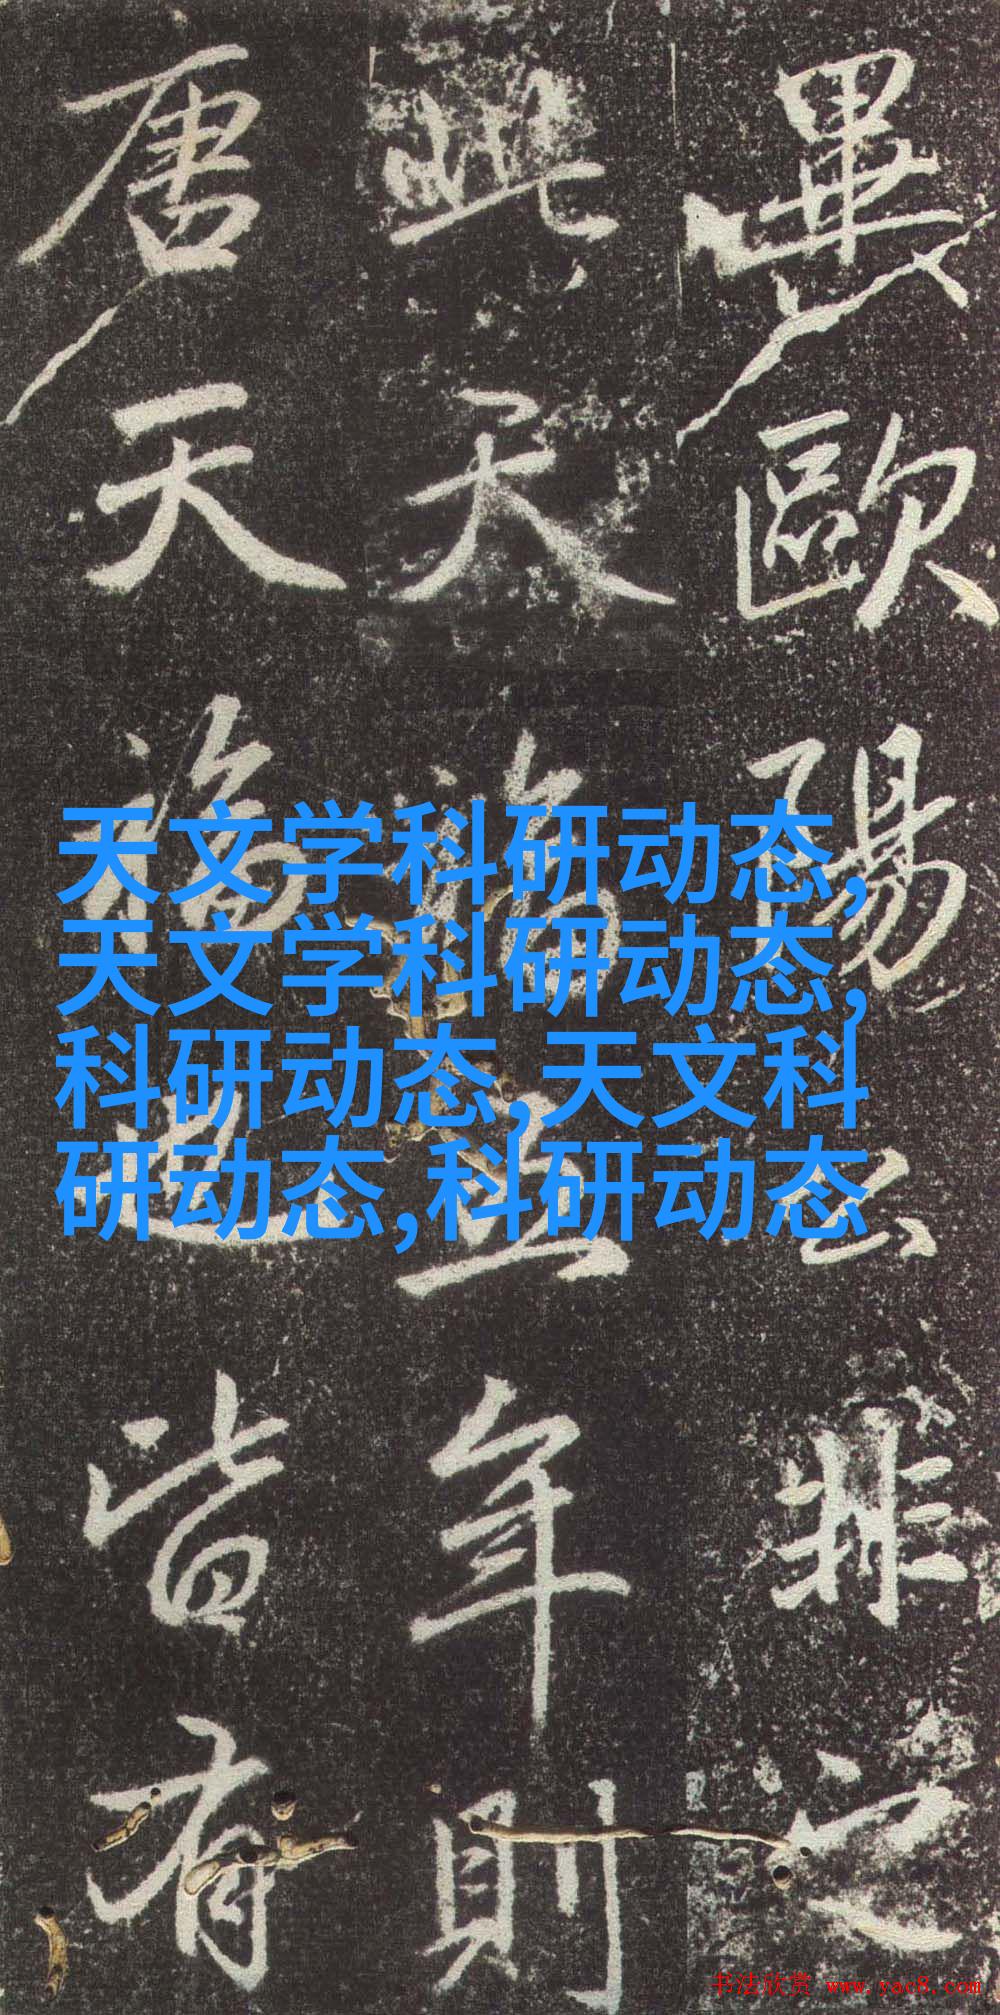 歐陽公非之
此天福五年則
唐天福皆有
天文学科研动态,
天文学科研动态,
科研动态,天文科
研动态,科研动态
书法欣赏 www.yac8.com